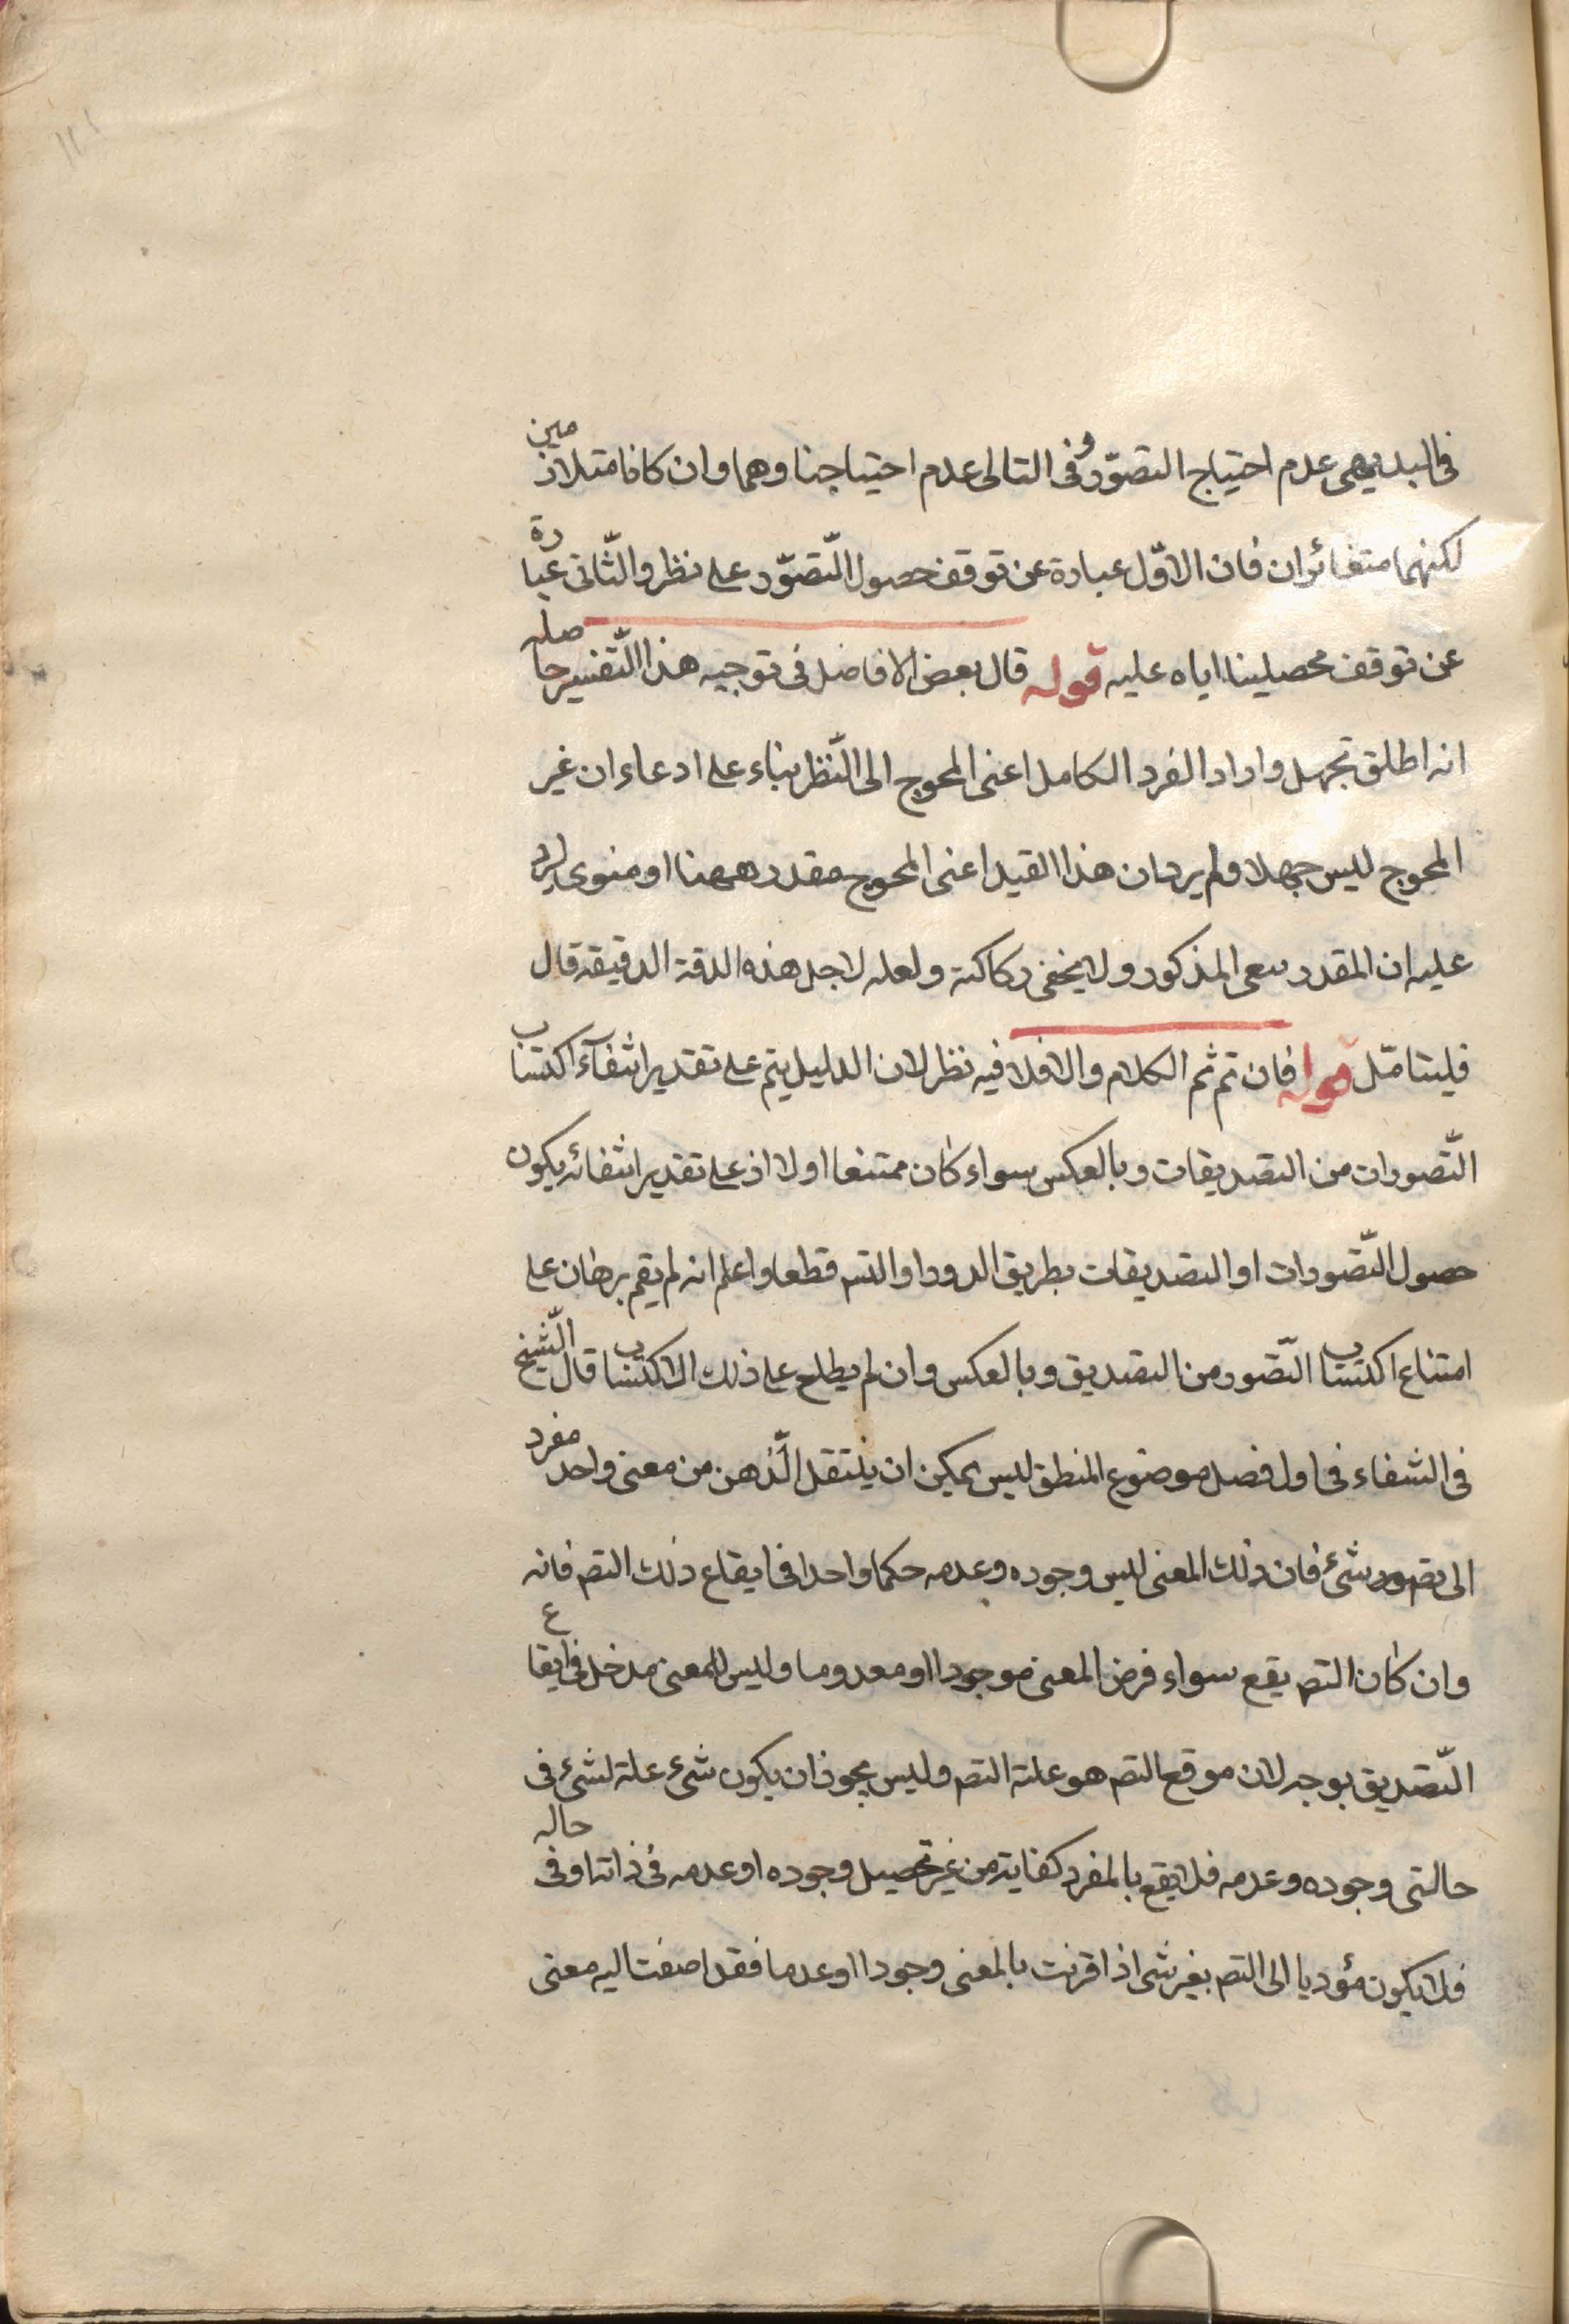 فى البديهى عدم احتياج التصوّر وفى التالى عدم احتياجنا وهما وان كانا متلازمين
لكنهما متغائران فان الاوّل عبارة عن توقف حصول التّصوّر على نظر والثّانى عبارة
عن توقف محصلينا اياه عليه قوله قال بعض الافاضل فى توجيه هذا التّفسير حاصله
انه اطلق تجهل واراد الفرد الكامل اعنى المحوج الى النّظر بناء على ادعاء ان غير
المحوج ليس جهلا ولم يرد ان هذا القيد اعنى المحوج مقدر ههنا او منوى ليرد
عليه ان المقدر سعى المذكور ولا يخفى ركاكته ولعله لاجل هذه الدقة الدقيقة قال
فليتامّل قوله فان تم ثم الكلام والا فلا فيه نظر لان الدليل يتم على تقدير انتفآء اكتساب
التّصورات من التصديقات وبالعكس سواء كان ممتنعا اولا اذ على تقدير انتفائه يكون
حصول التّصورات او التصديقات بطريق الدور او التس قطعا واعلم انه لم يقم برهان على
امتناع اكتساب التّصور من التصديق وبالعكس وان لم يطلع على ذلك الاكتساب قال الشّيخ
فى الشفاء فى اول فصل موضوع المنطق ليس يمكن ان ينتقل الذّهن من معنى واحد مفرد
الى تصور شئ فان ذلك المعنى ليس وجوده وعدمه حكما واحدا فى ايقاع ذلك التص فانه
وان كان التص يقع سواء فرض المعنى موجودا او معدوما وليس للمعنى مدخل فى ايقاع
التّصديق بوجه لان موقع التص هو علة التص وليس يجوز ان يكون شئ علة لشئ فى
حالتى وجوده وعدمه فلا يقع بالمفرد كفاية من غير تحصيل وجوده او عدمه فى ذاته او فى حاله
فلا يكون مؤديا الى التص بغير شى اذا قرنت بالمعنى وجودا او عدما فقد اضفت اليه معنى